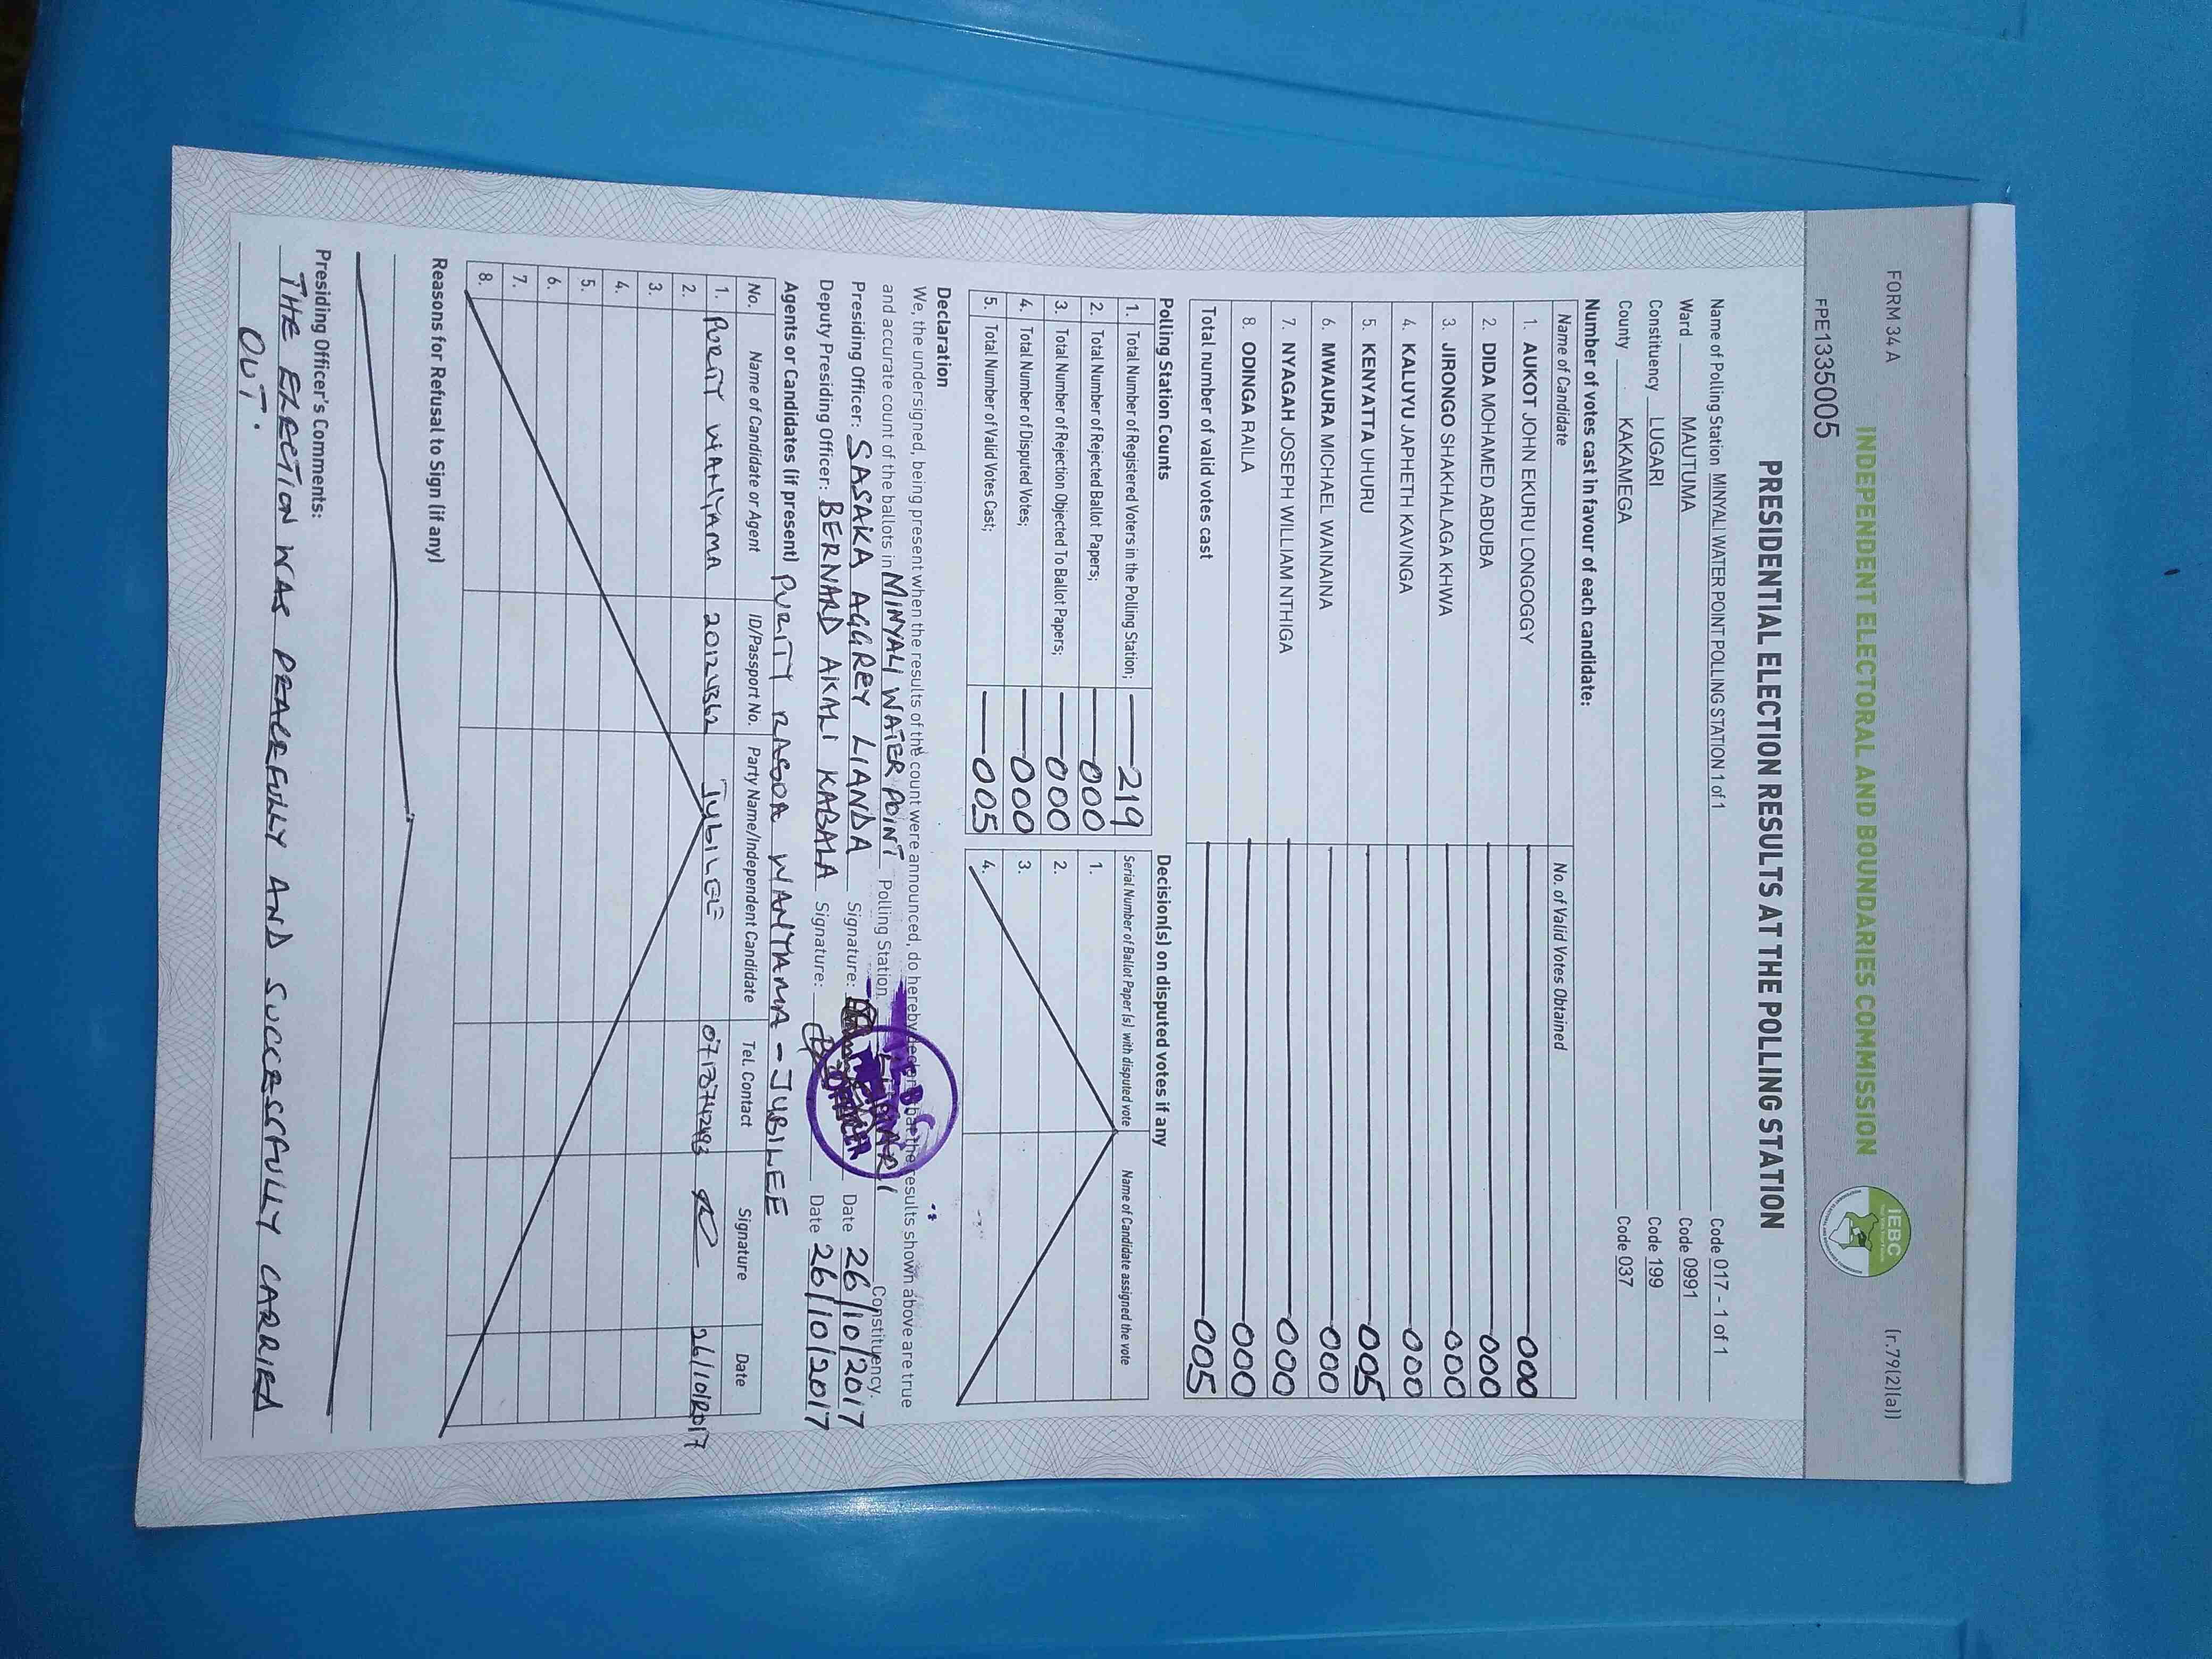 FORM 34 A
(r.79(2)(a))
INDEPENDENT ELECTORAL AND BOUNDARIES COMMISSION
IEBC
FPE1335005
PRESIDENTIAL ELECTION RESULTS AT THE POLLING STATION
Name of Polling Station MINYALI WATER POINT POLLING STATION 1 of 1 Code 017 - 1 of 1
Ward MAUTUMA Code 0991
Constituency LUGARI Code 199
County KAKAMEGA Code 037
Number of votes cast in favour of each candidate:
Name of Candidate No. of Valid Votes Obtained
1. AUKOT JOHN EKURU LONGOGGY 000
2. DIDA MOHAMED ABDUBA 000
3. JIRONGO SHAKHALAGA KHWA 000
4. KALUYU JAPHETH KAVINGA 000
5. KENYATTA UHURU 005
6. MWAURA MICHAEL WAINAINA 000
7. NYAGAH JOSEPH WILLIAM NTHIGA 000
8. ODINGA RAILA 000
Total number of valid votes cast 005
Polling Station Counts
1. Total Number of Registered Voters in the Polling Station; 219
2. Total Number of Rejected Ballot Papers; 000
3. Total Number of Rejection Objected To Ballot Papers; 000
4. Total Number of Disputed Votes; 000
5. Total Number of Valid Votes Cast; 005
Decision(s) on disputed votes if any
Serial Number of Ballot Paper (s) with disputed vote Name of Candidate assigned the vote
1.
2.
3.
4.
Declaration
We, the undersigned, being present when the results of the count were announced, do hereby declare that the results shown above are true
and accurate count of the ballots in MINYALI WATER POINT Polling Station LUGARI Constituency.
Presiding Officer: SASAKA AGGREY LIANDA Signature: Date 26/10/2017
Deputy Presiding Officer: BERNARD AKALI KABALA Signature: Date 26/10/2017
Agents or Candidates (if present) PURITY RASOA WANYAMA - JUBILEE
No. Name of Candidate or Agent ID/Passport No. Party Name/Independent Candidate Tel. Contact Signature Date
1. PURITY WANYAMA 20124362 JUBILEE 26/10/2017
2.
3.
4.
5.
6.
7.
8.
Reasons for Refusal to Sign (if any)
Presiding Officer's Comments:
THE ELECTION WAS PEACEFULLY AND SUCCESSFULLY CARRIED
OUT.